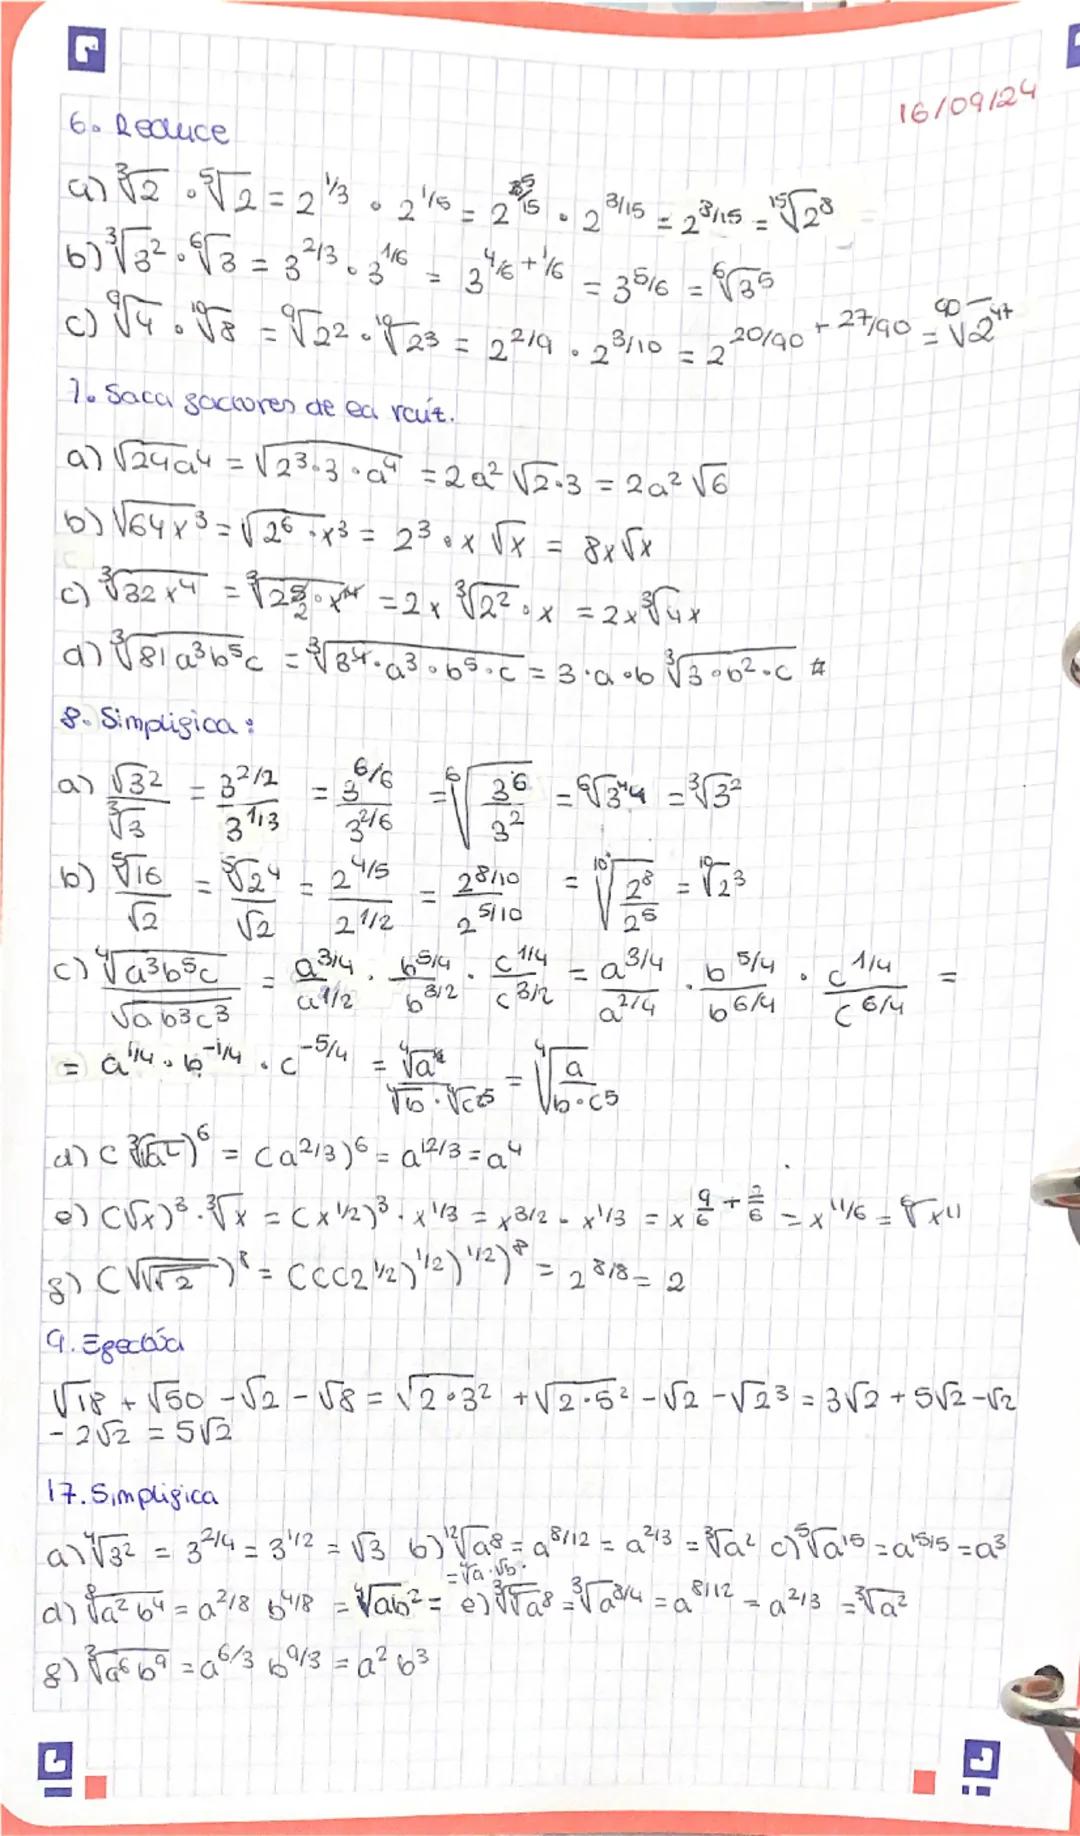 16/09/24
6. Reduce
a) ∛2 · ⁵√2 = 2^1/3 · 2^1/5 = 2^5/15 · 2^3/15 = 2^8/15 = ¹⁵√2⁸
b) ∛3² · ⁶√3 = 3^2/3 · 3^1/6 = 3^4/6 + 1/6 = 3^5/6 = ⁶√3⁵
c) ⁹√4 · ¹⁰√8 = ⁹√2² · ¹⁰√2³ = 2^2/9 · 2^3/10 = 2^20/90 + 27/90 = ⁹⁰√2⁴⁷
7. Saca factores de la raíz.
a) √24a⁴ = √2³·3·a⁴ = 2a² √2·3 = 2a² √6
b) √64x³ = √2⁶·x³ = 2³·x √x = 8x√x
c) ∛32x⁴ = ∛2⁵·x⁴ = 2x ∛2²·x = 2x∛4x
d) ∛81a³b⁵c = ∛3⁴·a³·b⁵·c = 3·a·b ∛3·b²·c #
8. Simplifica:
a) √3²/∛3 = 3^2/2/3^1/3 = 3^6/6/3^2/6 = ⁶√3⁶/3² = ⁶√3⁴ = ∛3²
b) ⁵√16/√2 = ⁵√2⁴/√2 = 2^4/5/2^1/2 = 2^8/10/2^5/10 = ¹⁰√2⁸/2⁵ = ¹⁰√2³
c) ⁴√a³b⁵c/√ab³c³ = a^3/4/a^1/2 · b^5/4/b^3/2 · c^1/4/c^3/2 = a^3/4/a^2/4 · b^5/4/b^6/4 · c^1/4/c^6/4 =
= a^1/4 · b^-1/4 · c^-5/4 = ⁴√a/⁴√b · ⁴√c⁵ = ⁴√a/b·c⁵
d) (∛a²)⁶ = (a^2/3)⁶ = a^12/3 = a⁴
e) (√x)³ · ∛x = (x^1/2)³ · x^1/3 = x^3/2 · x^1/3 = x^9/6 + 2/6 = x^11/6 = ⁶√x¹¹
f) (√√√2)⁸ = (((2^1/2)^1/2)^1/2)⁸ = 2^8/8 = 2
9. Efectúa
√18 + √50 - √2 - √8 = √2·3² + √2·5² - √2 - √2³ = 3√2 + 5√2 - √2
- 2√2 = 5√2
17. Simplifica
a) ⁴√3² = 3^2/4 = 3^1/2 = √3 b) ¹²√a⁸ = a^8/12 = a^2/3 = ∛a² c) ⁵√a¹⁵ = a^15/5 = a³
= ⁴√a · √b ·
d) ⁸√a²b⁴ = a^2/8 b^4/8 = ⁴√ab² = e) ∛⁴√a⁸ = ∛a^8/4 = a^8/12 = a^2/3 = ∛a²
f) ∛a⁶b⁹ = a^6/3 b^9/3 = a² b³